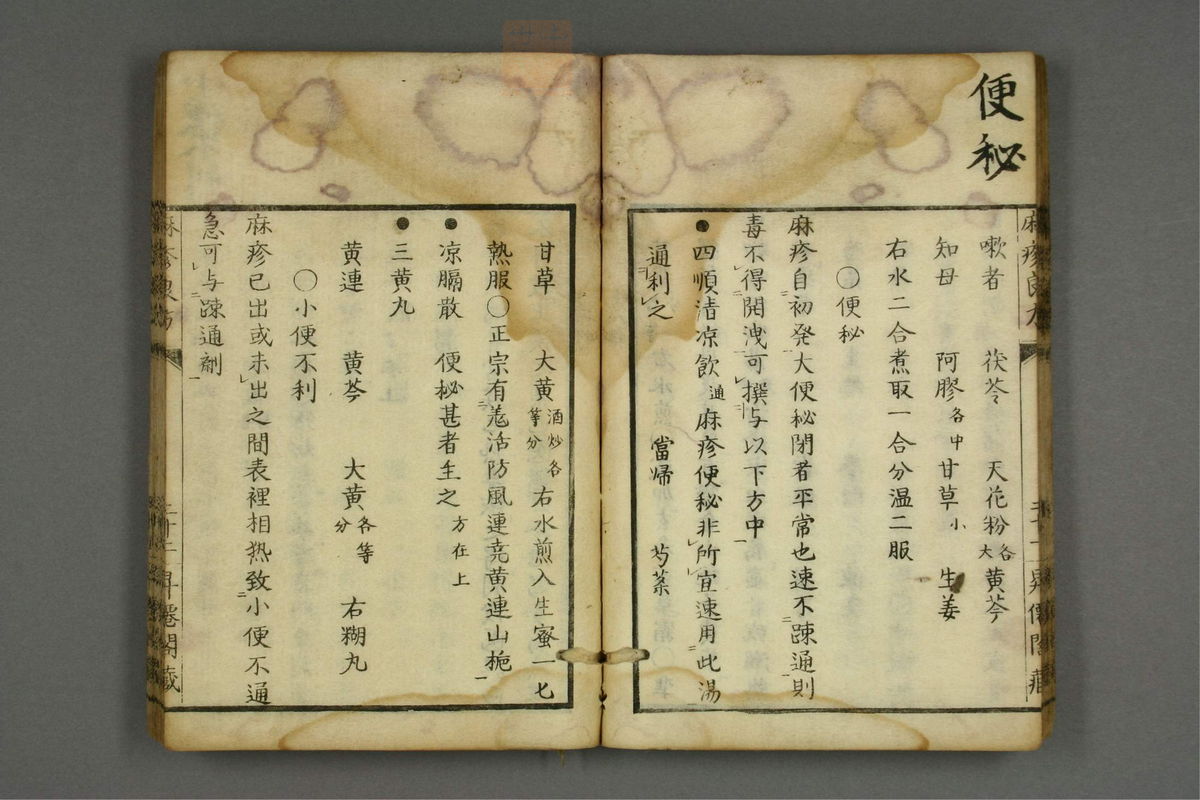 便秘
嗽者 茯苓 天花粉各大 黄芩
知母 阿膠各中 甘草小 生姜
右水二合煮取一合分温二服
○便秘
麻疹自初発大便秘閉者平常也速不踈通則
毒不得開洩可撰与以下方中
●四順清凉飲通麻疹便秘非所宜速用此湯
通利之 當帰 芍薬
甘草 大黄酒炒各等分 右水煎入生蜜一匕
熱服○正宗有羗活防風連尭黄連山梔
●凉膈散 便秘甚者主之方在上
●三黄丸
黄連 黄芩 大黄各等分 右糊丸
○小便不利
麻疹已出或未出之間表裡相热致小便不通
急可与踈通劑